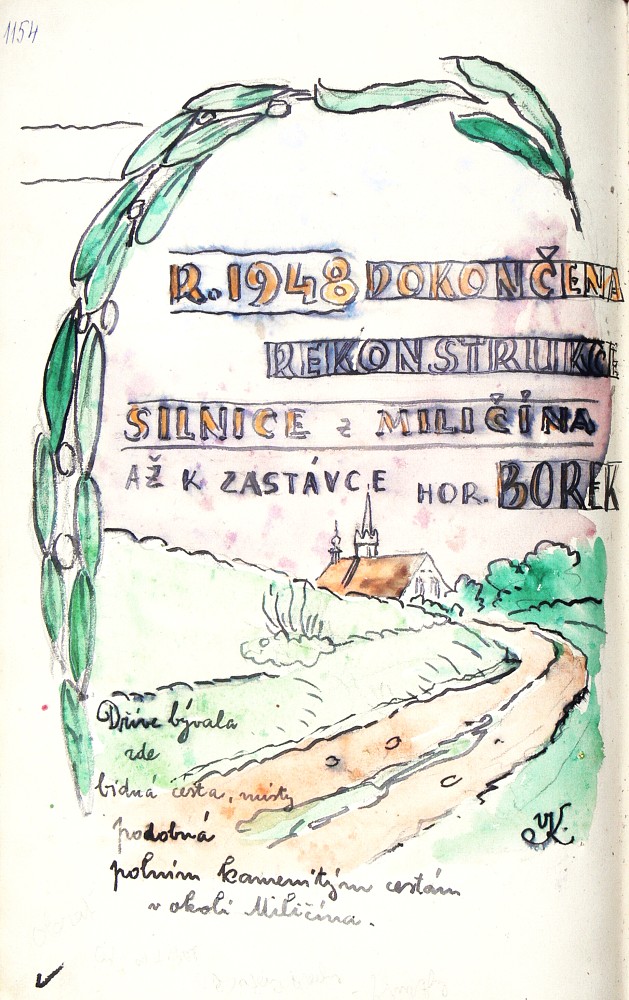 1154
R. 1948 DOKONČENA
REKONSTRUKCE
SILNICE z MILIČÍNA
AŽ K ZASTÁVCE HOR. BOREK
Dříve bývala
zde
bídná cesta, místy
podobná
polním kamenitým cestám
v okolí Miličína.
VK.